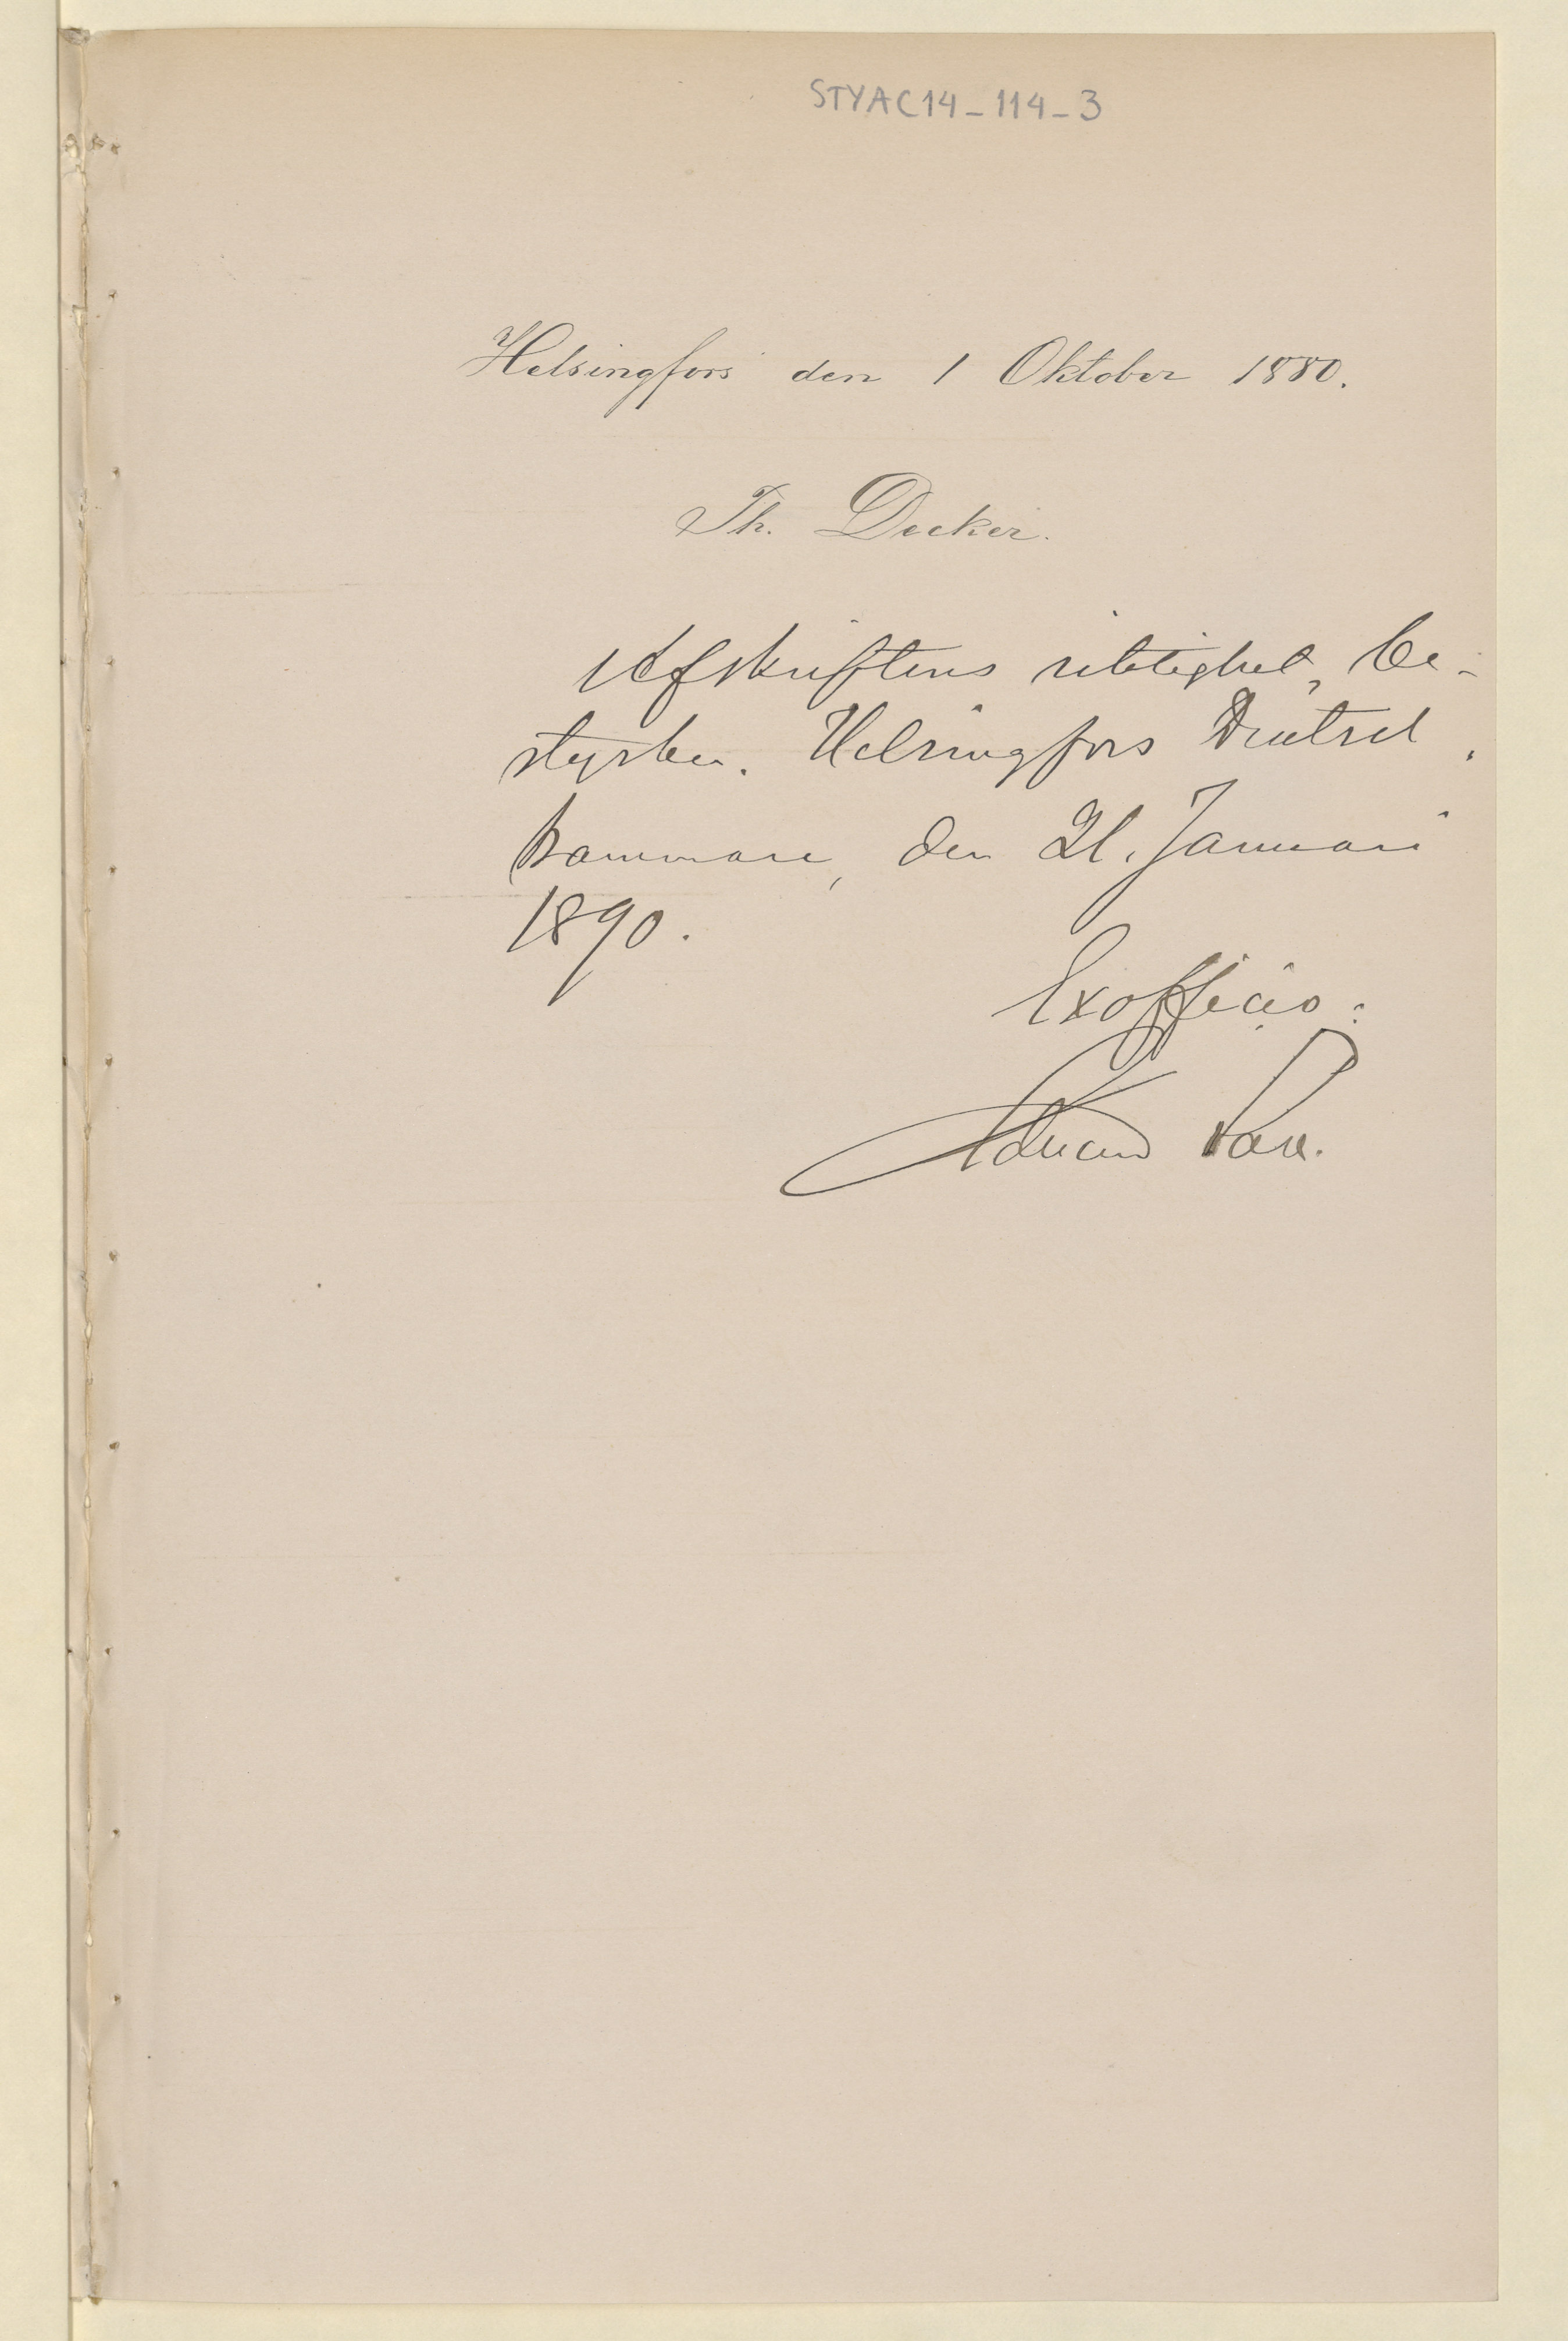 STYAC14-114-3
Helsingfors den 1 Oktober 1880.
Th. Decker.
Afskriftens riktighet, be-
styrker. Helsingfors Drätsel
kammare, den 21. Januari
1890.
Exofficio:
Eduard